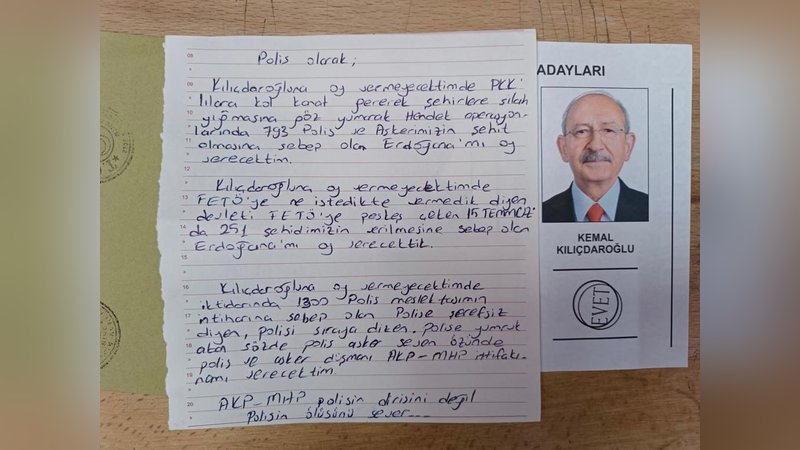 Polis olarak;
Kılıçdaroğluna oy vermeyecektimde PKK'
lılara kol kanat gererek şehirlere silah
yığmasına göz yumarak Hendek operasyon-
larında 793 Polis ve Askerimizin şehit
olmasına sebep olan Erdoğana'mı oy
verecektim.
Kılıçdaroğluna oy vermeyecektimde
FETÖ'ye ne istedikte vermedik diyen
devleti FETÖ'ye peşkeş çeken 15 TEMMUZ'
da 251 şehidimizin verilmesine sebep olan
Erdoğana'mı oy verecektik.
Kılıçdaroğluna oy vermeyecektimde
iktidarında 1300 Polis meslektaşımın
intiharına sebep olan Polise şerefsiz
diyen, polisi sıraya dizen. Polise yumruk
atan sözde polis asker seven özünde
polis ve asker düşmanı AKP-MHP ittifakı-
namı verecektim.
AKP-MHP polisin dirisini değil
Polisin ölüsünü sever...
ADAYLARI
KEMAL
KILIÇDAROĞLU
EVET